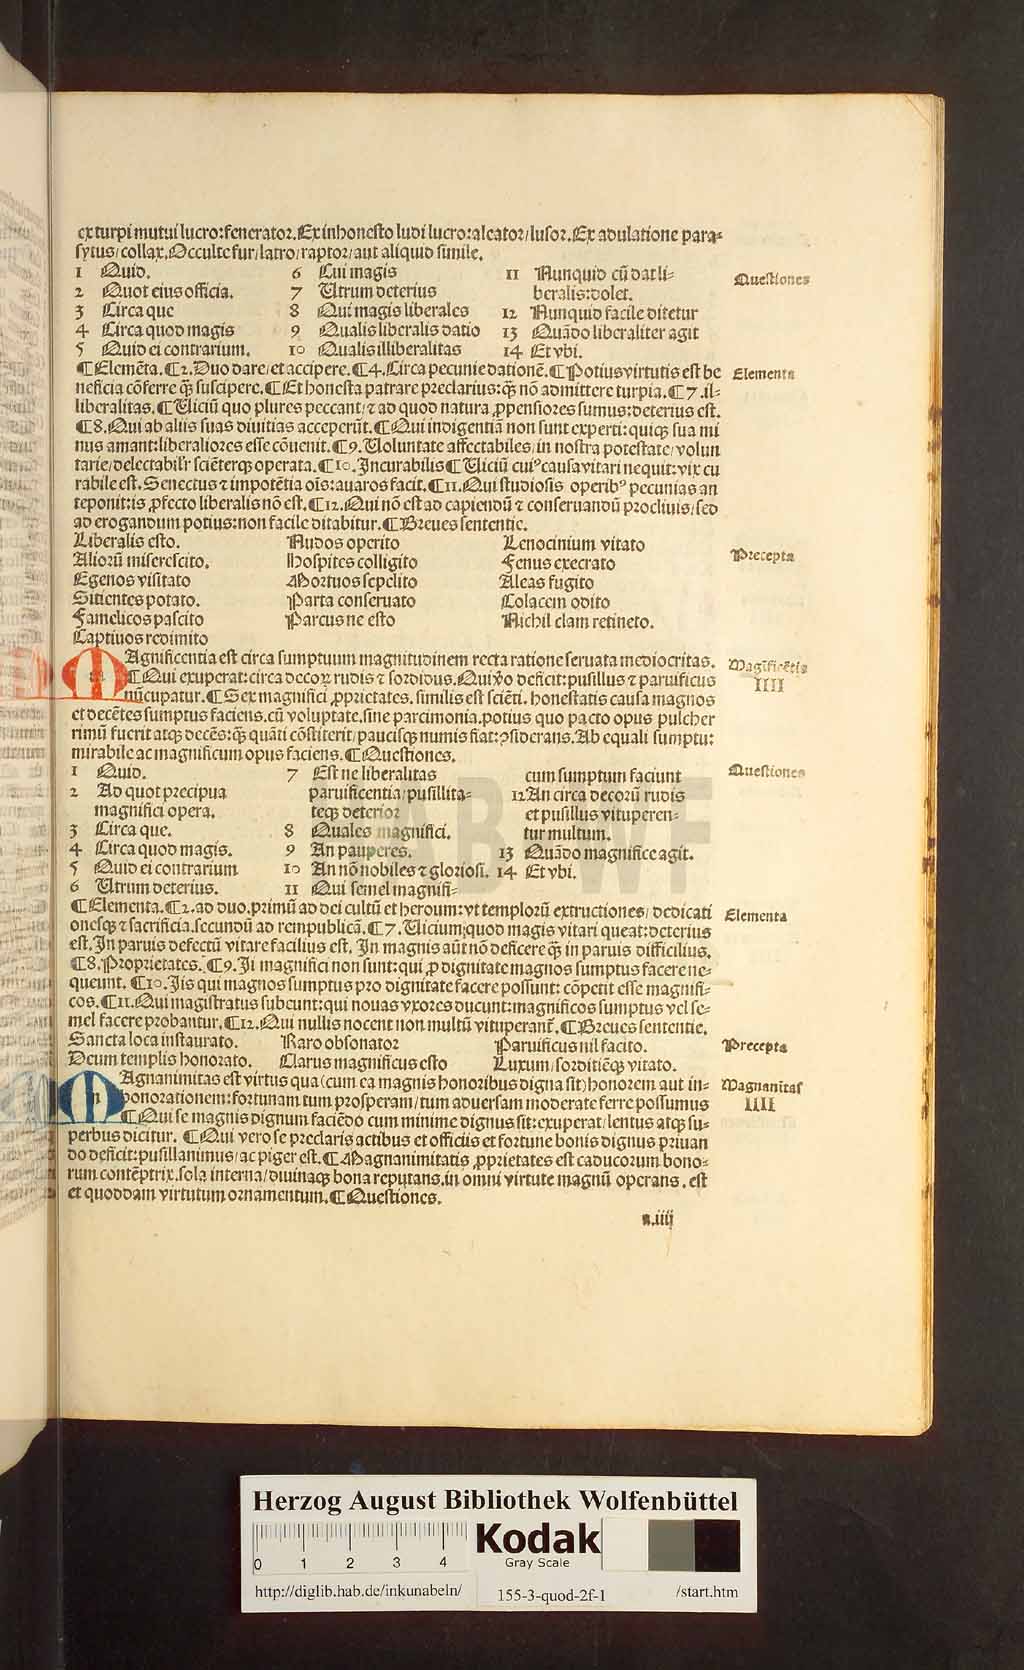 ex turpi mutui lucro:fenerator.Ex inhonesto ludi lucro:aleator/lusor.Ex adulatione para⸗
sytus/collax.Occulte fur/latro/raptor/aut aliquid simile.
1 Quid.
2 Quot eius officia.
3 Circa que
4 Circa quod magis
5 Quid ei contrarium.
6 Cui magis
7 Utrum deterius
8 Qui magis liberales
9 Qualis liberalis datio
10 Qualis illiberalitas
11 Nunquid cū dat li⸗
beralis:dolet.
12 Nunquid facile ditetur
13 Quādo liberaliter agit
14 Et vbi.
Questiones
¶Elemēta.¶2.Duo dare/et accipere.¶4.Circa pecunie dationē.¶Potius virtutis est be
neficia cōferre qȝ suscipere.¶Et honesta patrare preclarius:qȝ nō admittere turpia.¶7.il⸗
liberalitas.¶Uiciū quo plures peccant/⁊ ad quod natura ꝓpensiores sumus:deterius est.
¶8.Qui ab aliis suas diuitias acceperūt.¶Qui indigentiā non sunt experti:quiqȝ sua mi
nus amant:liberaliores esse cōuenit.¶9.Uoluntate affectabiles/in nostra potestate/volun
tarie/delectabilr̄ sciēterqȝ operata.¶10.Incurabilis¶Uiciū cuiꝰ causa vitari nequit:vix cu
rabile est.Senectus ⁊ impotētia oīs:auaros facit.¶11.Qui studiosis operibꝰ pecunias an
teponit:is ꝓfecto liberalis nō est.¶12.Qui nō est ad capiendū ⁊ conseruandū procliuis/sed
ad erogandum potius:non facile ditabitur.¶Breues sententie.
Elementa
Liberalis esto.
Aliorū miserescito.
Egenos visitato
Sitientes potato.
Famelicos pascito
Captiuos redimito
Nudos operito
Hospites colligito
Mortuos sepelito
Parta conseruato
Parcus ne esto
Lenocinium vitato
Fenus execrato
Aleas fugito
Colacem odito
Nichil clam retineto.
Precepta
MAgnificentia est circa sumptuum magnitudinem recta ratione seruata mediocritas.
¶Qui exuperat:circa decoꝝ rudis ⁊ sordidus.Qui v̄o deficit:pusillus ⁊ paruificus
nūcupatur.¶Sex magnifici ꝓprietates.similis est sciēti.honestatis causa magnos
et decētes sumptus faciens.cū voluptate.sine parcimonia.potius quo pacto opus pulcher
rimū fuerit atqȝ decēs:qȝ quāti cōstiterit/paucisqȝ numis fiat:ↄsiderans.Ab equali sumptu:
mirabile ac magnificum opus faciens.¶Questiones.
Magīficētia
IIII
1 Quid.
2 Ad quot precipua
magnifici opera.
3 Circa que.
4 Circa quod magis.
5 Quid ei contrarium
6 Utrum deterius.
7 Est ne liberalitas
paruificentia/pusillita⸗
teqȝ deterior
8 Quales magnifici.
9 An pauperes.
10 An nō nobiles ⁊ gloriosi.
11 Qui semel magnifi⸗
cum sumptum faciunt
12 An circa decorū rudis
et pusillus vituperen⸗
tur multum.
13 Quādo magnifice agit.
14 Et vbi.
Questiones
¶Elementa.¶2.ad duo.primū ad dei cultū et heroum:vt templorū extructiones/dedicati
onesqȝ ⁊ sacrificia.secundū ad rempublicā.¶7.Uicium:quod magis vitari queat:deterius
est.In paruis defectū vitare facilius est.In magnis aūt nō deficere qȝ in paruis difficilius.
¶8.Proprietates.¶9.Ii magnifici non sunt:qui ꝓ dignitate magnos sumptus facere ne⸗
queunt.¶10.Iis qui magnos sumptus pro dignitate facere possunt: cōpetit esse magnifi⸗
cos.¶11.Qui magistratus subeunt:qui nouas vxores ducunt:magnificos sumptus vel se⸗
mel facere probantur.¶12.Qui nullis nocent non multū vituperant̄.¶Breues sententie.
Elementa
Sancta loca instaurato.
Deum templis honorato.
Raro obsonator
Clarus magnificus esto
Paruificus nil facito.
Luxum/sorditiēqȝ vitato.
Precepta
MAgnanimitas est virtus qua(cum ea magnis honoribus digna sit)honorem aut in⸗
honorationem:fortunam tum prosperam/tum aduersam moderate ferre possumus
¶Qui se magnis dignum faciēdo cum minime dignus sit:exuperat/lentus atqȝ su⸗
perbus dicitur. ¶Qui vero se preclaris actibus et officiis et fortune bonis dignus priuan
do deficit:pusillanimus/ac piger est.¶Magnanimitatis ꝓprietates est caducorum bono⸗
rum contēptrix.sola interna/diuinaqȝ bona reputans.in omni virtute magnū operans.est
et quoddam virtutum ornamentum.¶Questiones.
Magnanītas
IIII
a.iiij
HAB WF
Herzog August Bibliothek Wolfenbüttel
0 1 2 3 4
Kodak
Gray Scale
http://diglib.hab.de/inkunabeln/
155-3-quod-2f-1
/start.htm